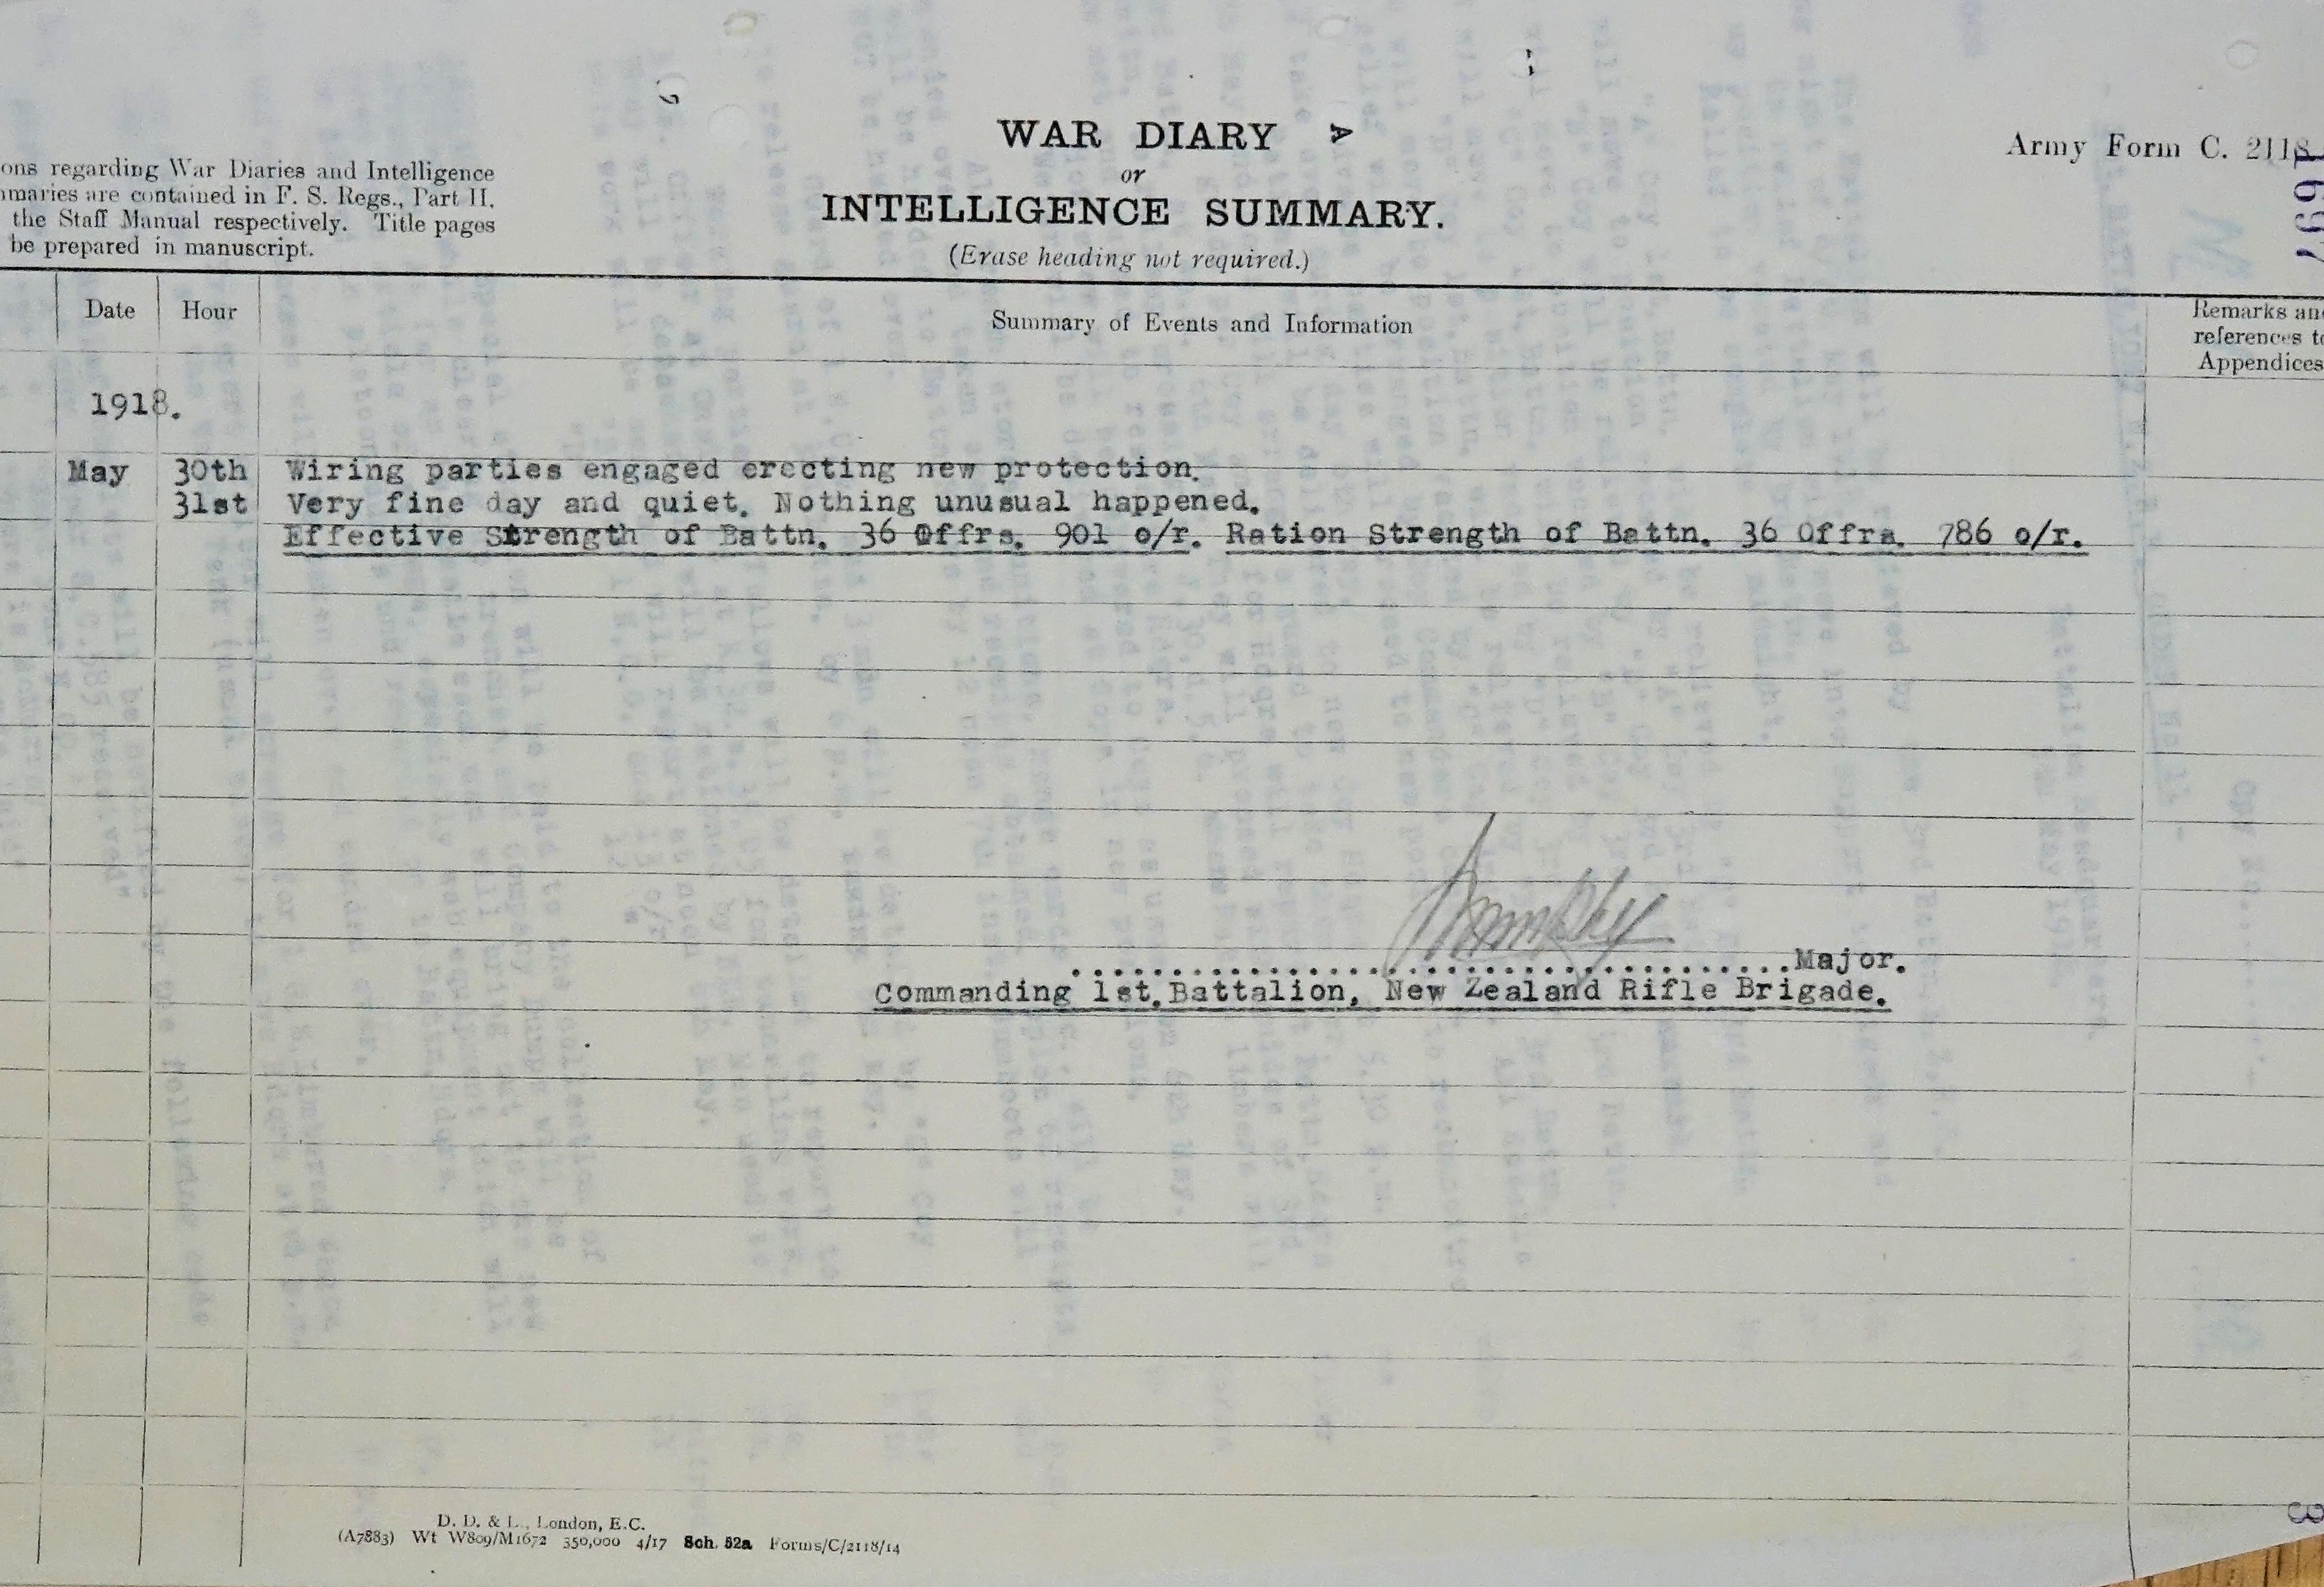 WAR DIARY
or
INTELLIGENCE SUMMARY.
(Erase heading not required.)
Army Form C. 2118
1697
ons regarding War Diaries and Intelligence
mmaries are contained in F. S. Regs., Part II.
the Staff Manual respectively. Title pages
be prepared in manuscript.
Date Hour Summary of Events and Information Remarks and references to Appendices
1918.
May 30th Wiring parties engaged erecting new protection.
31st Very fine day and quiet. Nothing unusual happened.
Effective Strength of Battn. 36 Offrs. 901 o/r. Ration Strength of Battn. 36 Offrs. 786 o/r.
Major.
Commanding 1st.Battalion, New Zealand Rifle Brigade.
D. D. & L., London, E.C.
(A7883) Wt W809/M1672 350,000 4/17 Sch. 52a Forms/C/2118/14
3